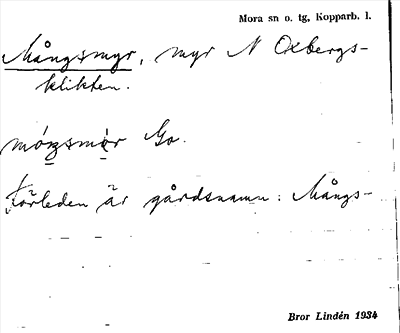 Mora sn o. tg, Kopparb. l.
Mångsmyr, myr N Oxbergs-
klikten.
Go.
Förleden är gårdsnamn: Mångs-
Bror Lindén 1934